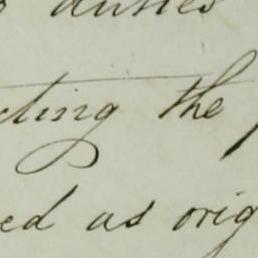 duties
cting the
ed as orig